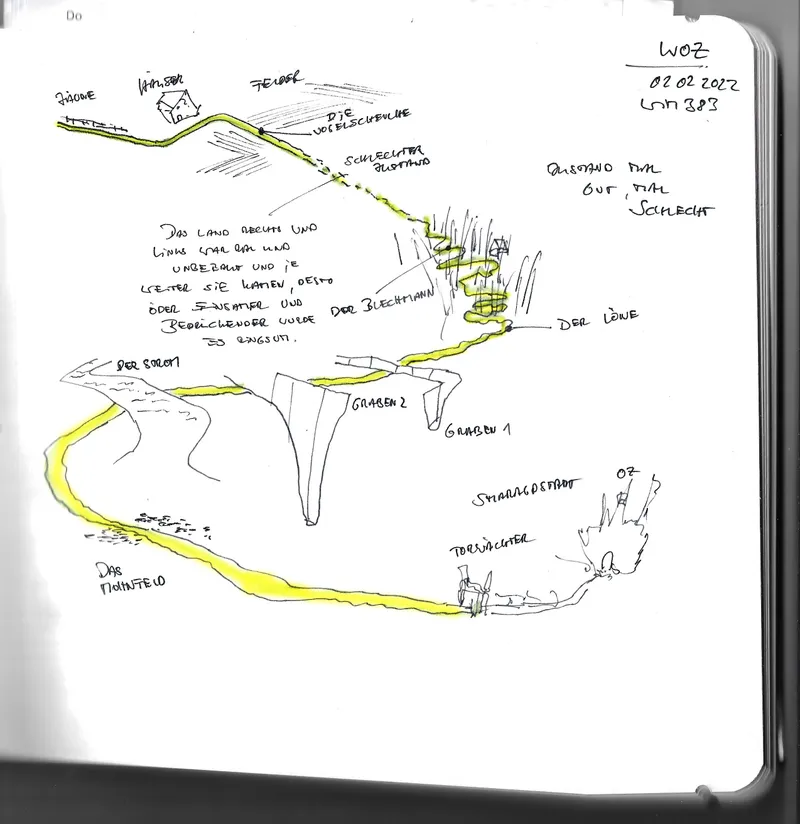 Do
WOZ
02 02 2022
ZÄUNE
HÄUSER
FELDER
DIE
VOGELSCHEUCHE
SCHLECHTER
ZUSTAND
ZUSTAND MAL
GUT, MAL
SCHLECHT
DAS LAND RECHTS UND
LINKS WAR RAU UND
UNBEBAUT UND JE
WEITER SIE KAMEN, DESTO
ÖDER EINSAMER UND
BEDRÜCKENDER WURDE
ES RINGSUM.
DER BLECHMANN
DER LÖWE
DER STROM
GRABEN 2
GRABEN 1
SMARAGDSTADT
OZ
TORWÄCHTER
DAS
MOHNFELD